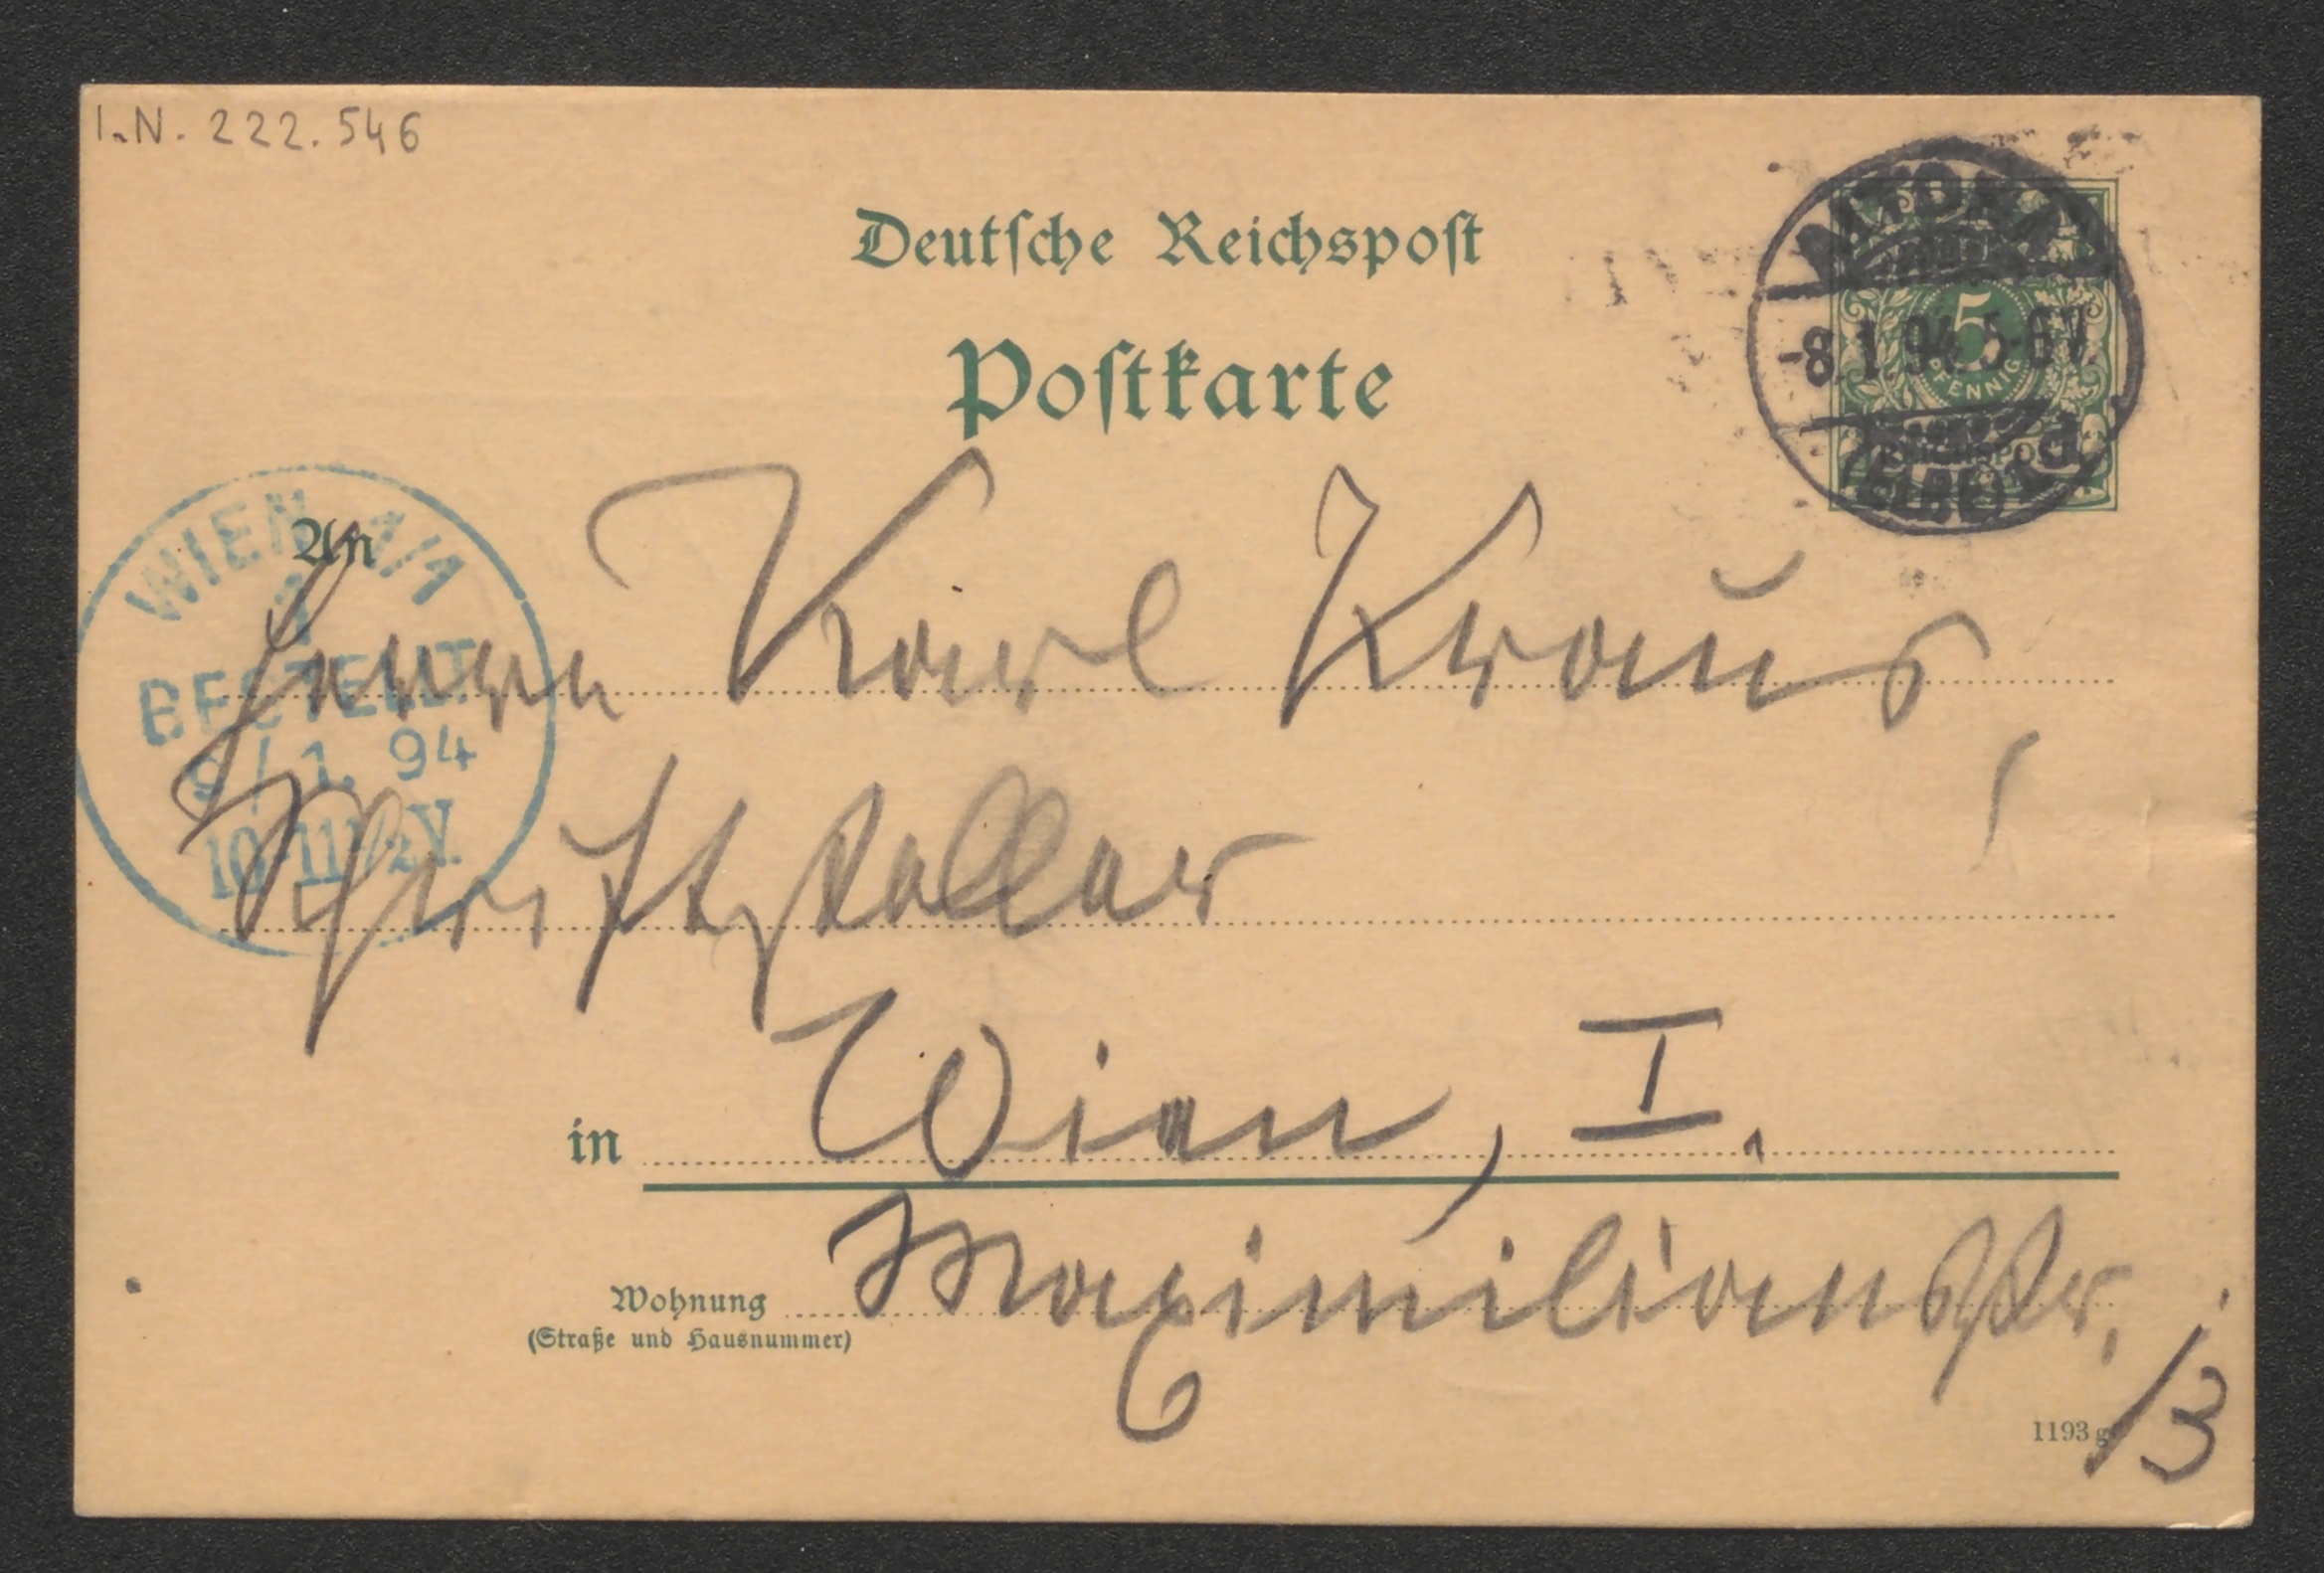 I.N. 222.546
Deutsche Reichspost
Postkarte
ALTONA
-8.1.94.5-6V.
(ELBE) 1 d
5
PFENNIG
REICHSPOST
WIEN 1/1
1
BESTELLT
9/1. 94
10-11½V.
An
Herrn Karl Kraus,
Schriftsteller
in Wien, I.
Wohnung Maximilianstr.
(Straße und Hausnummer)
/3
1193 g